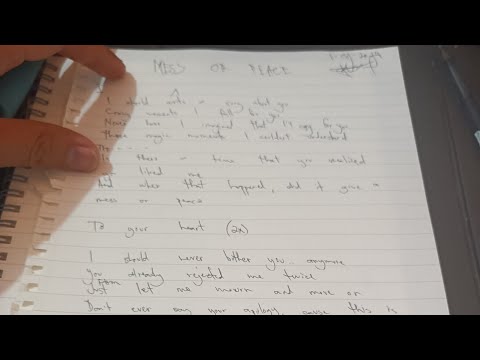 MESS OR PEACE
I should write a song about you
Crazy moments I felt for you
Never have I imagined that I'd cry for you
Those magic moments I couldn't understand
The ...
Is there a time that you realized
you liked me
And when that happened, did it give a
mess or peace
To your heart (2x)
I should never bother you anymore
You already rejected me twice
Just let me mourn and move on
Don't ever say your apology, cause this is